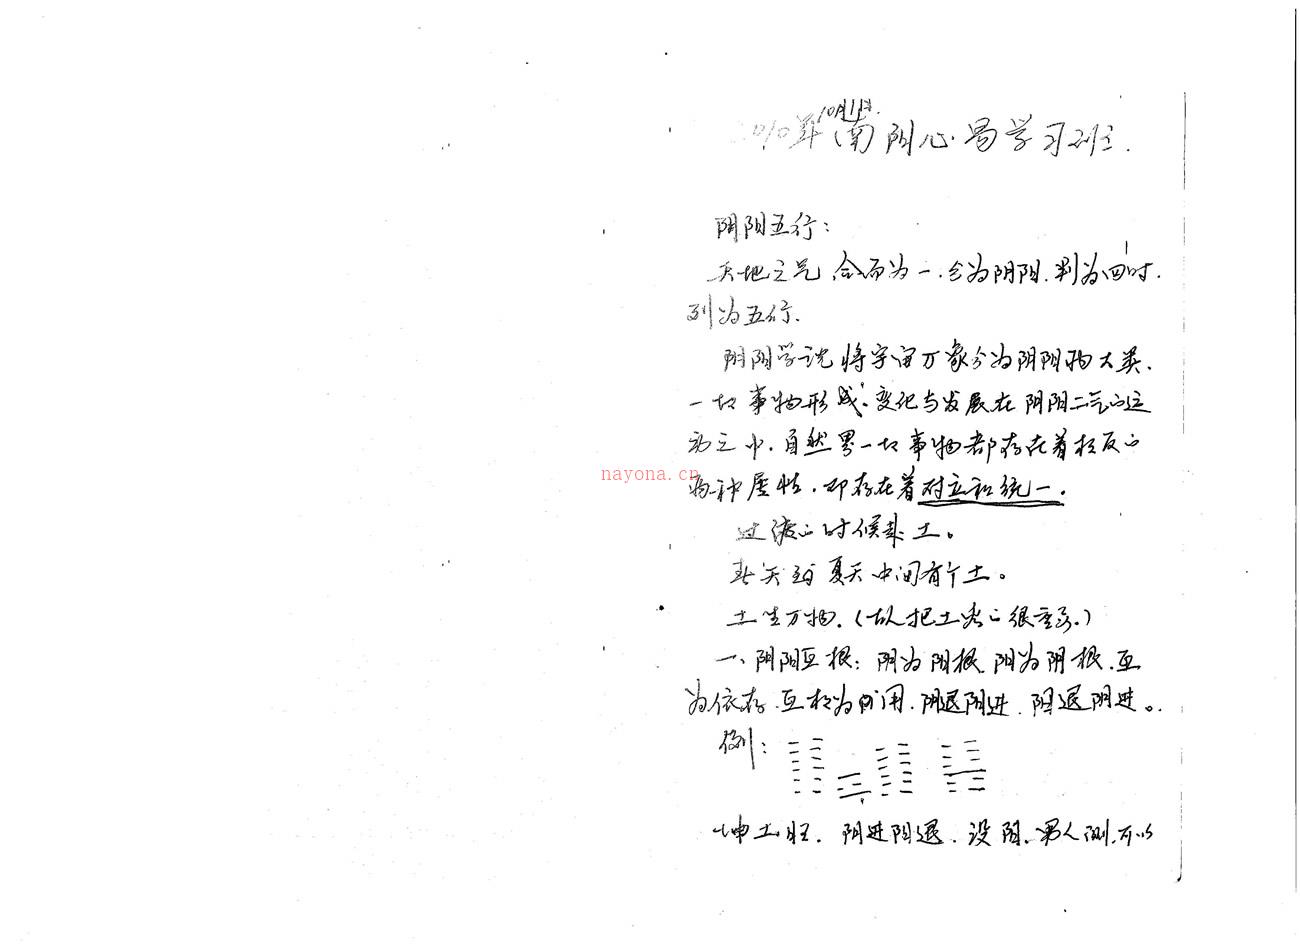 10月1日
2010年南阳心易学习班.
阴阳五行:
天地之气,合而为一.分为阴阳.判为四时.
列为五行.
阴阳学说将宇宙万象分为阴阳两大类.
一切事物形成.变化与发展在阴阳二气的运
动之中.自然界一切事物都存在着相反的
两种属性.即存在着对立和统一.
过渡的时候是土。
春天到夏天中间有个土。
土生万物.(故把土类的很重要.)
一、阴阳互根:阴为阳根.阳为阴根.互
为依存.互相为用.阴退阳进.阳退阴进。
例:
坤土旺.阴进阳退.没阳.男人倒.不以
nayona.cn